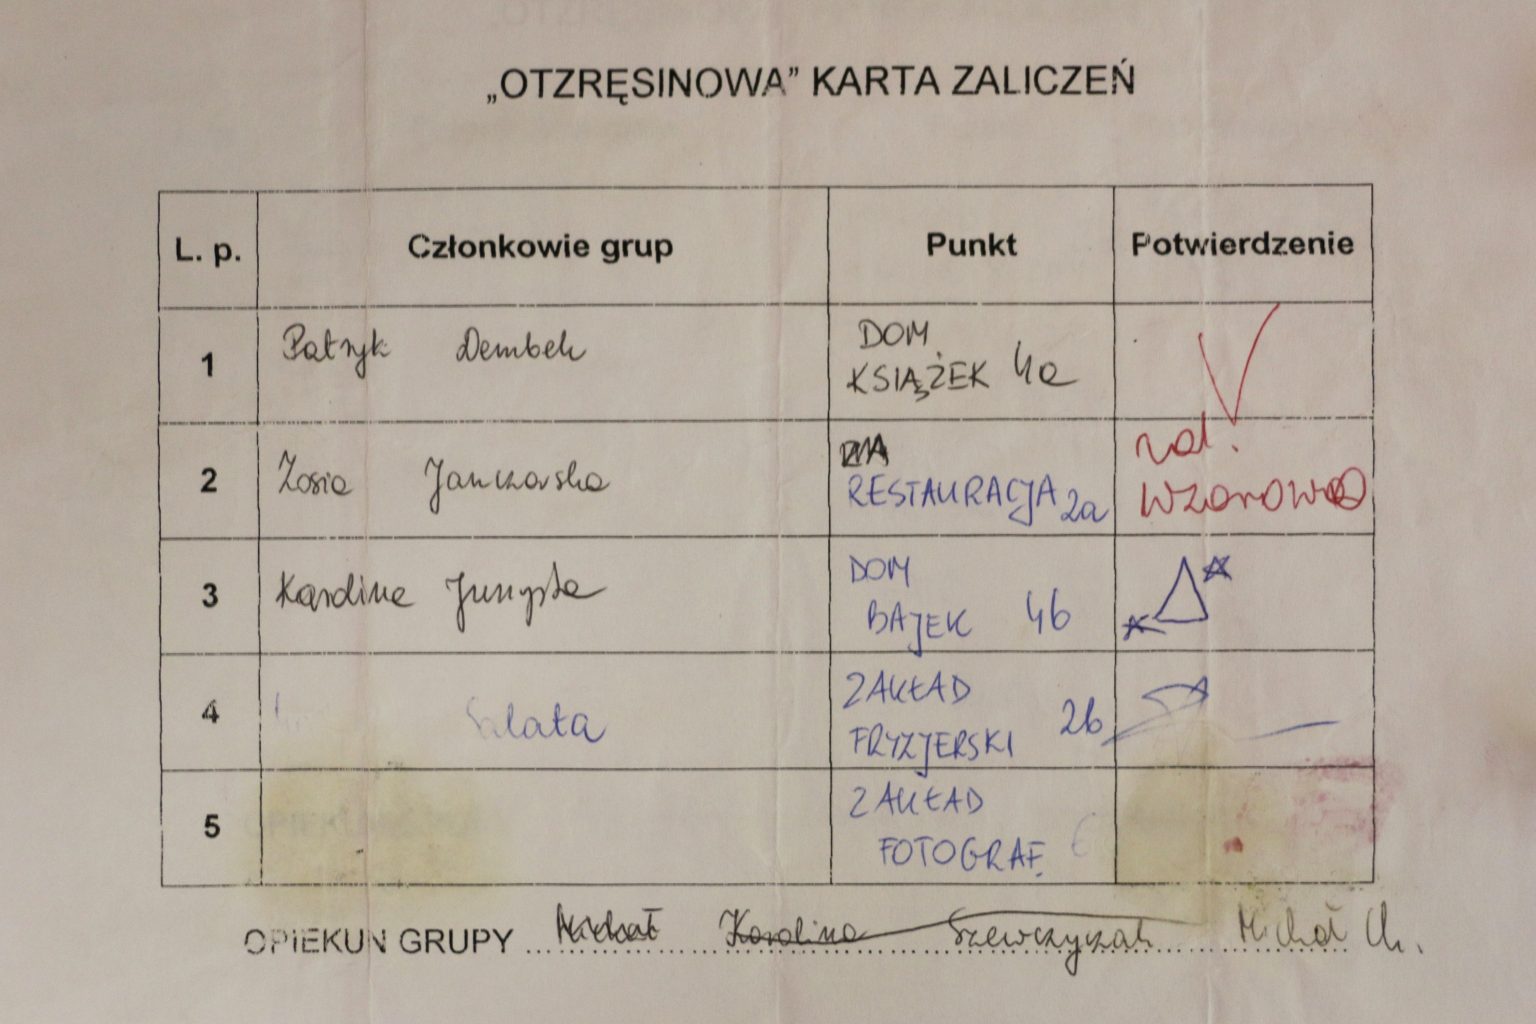 „OTZRĘSINOWA” KARTA ZALICZEŃ
L. p. Członkowie grup Punkt Potwierdzenie
1 Patryk Dembek DOM KSIĄŻEK 4a
2 Zosia Janczarska RESTAURACJA 2a zal. wzorowo
3 Karolina DOM BAJEK 4b
4 Sałata ZAKŁAD FRYZJERSKI 2b
5 ZAKŁAD FOTOGRAF.
OPIEKUN GRUPY Michał Karolina Szewczyczak Michał Ch.